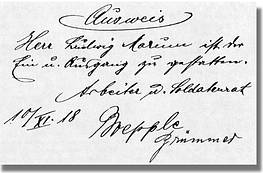 Ausweis
Herr Ludwig Marum ist der
Ein u. Ausgang zu gestatten.
Arbeiter u. Soldatenrat
10/XI. 18
Brümmer